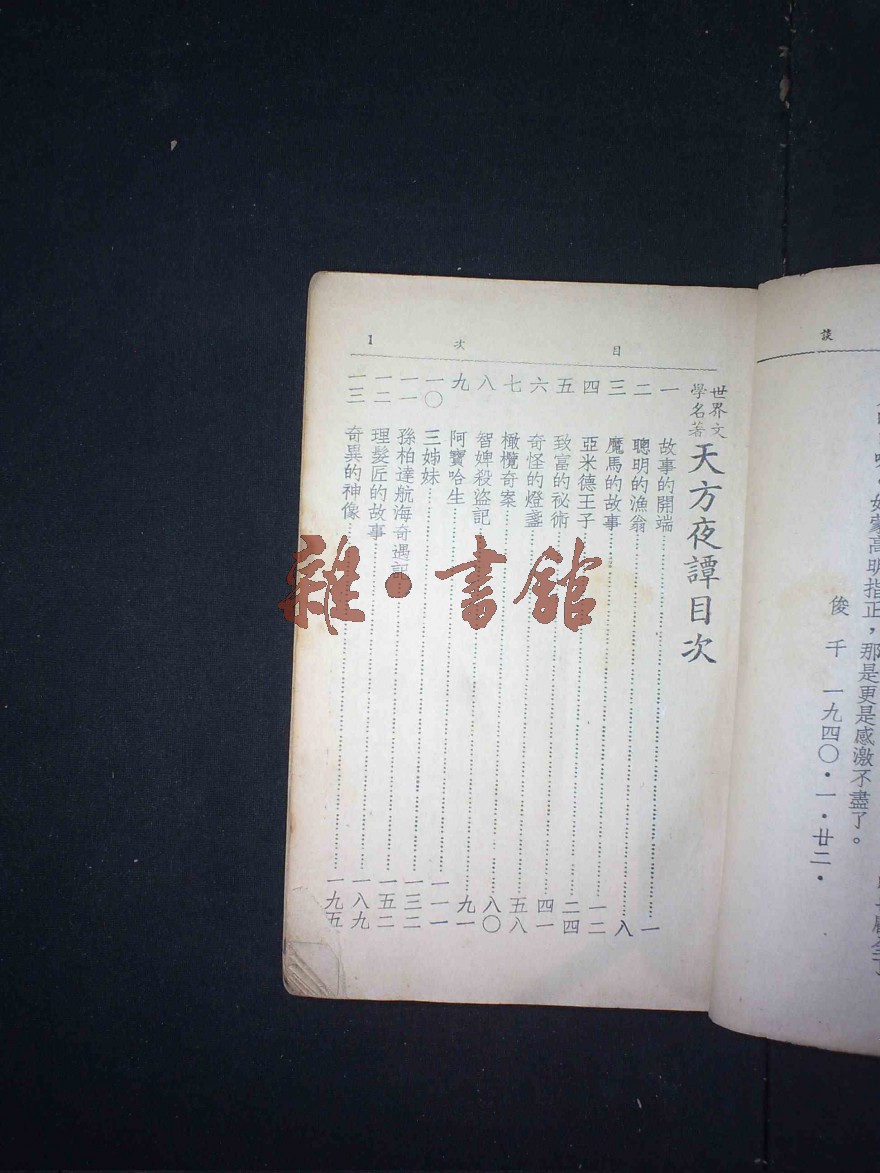 談
如蒙高明指正，那是更是感激不盡了。
俊千 一九四〇·一·廿二·
目次 I
世界文學名著 天方夜譚目次
一 故事的開端 一
二 聰明的漁翁 八
三 魔馬的故事 一二
四 亞米德王子 二四
五 致富的祕術 四一
六 奇怪的燈盞 五八
七 橄欖奇案 八〇
八 智婢殺盜記 九一
九 阿寶哈生 一一一
一〇 三姊妹 一三二
一一 孫柏達航海奇遇記 一五二
一二 理髮匠的故事 一八九
一三 奇異的神像 一九五
雜·書館